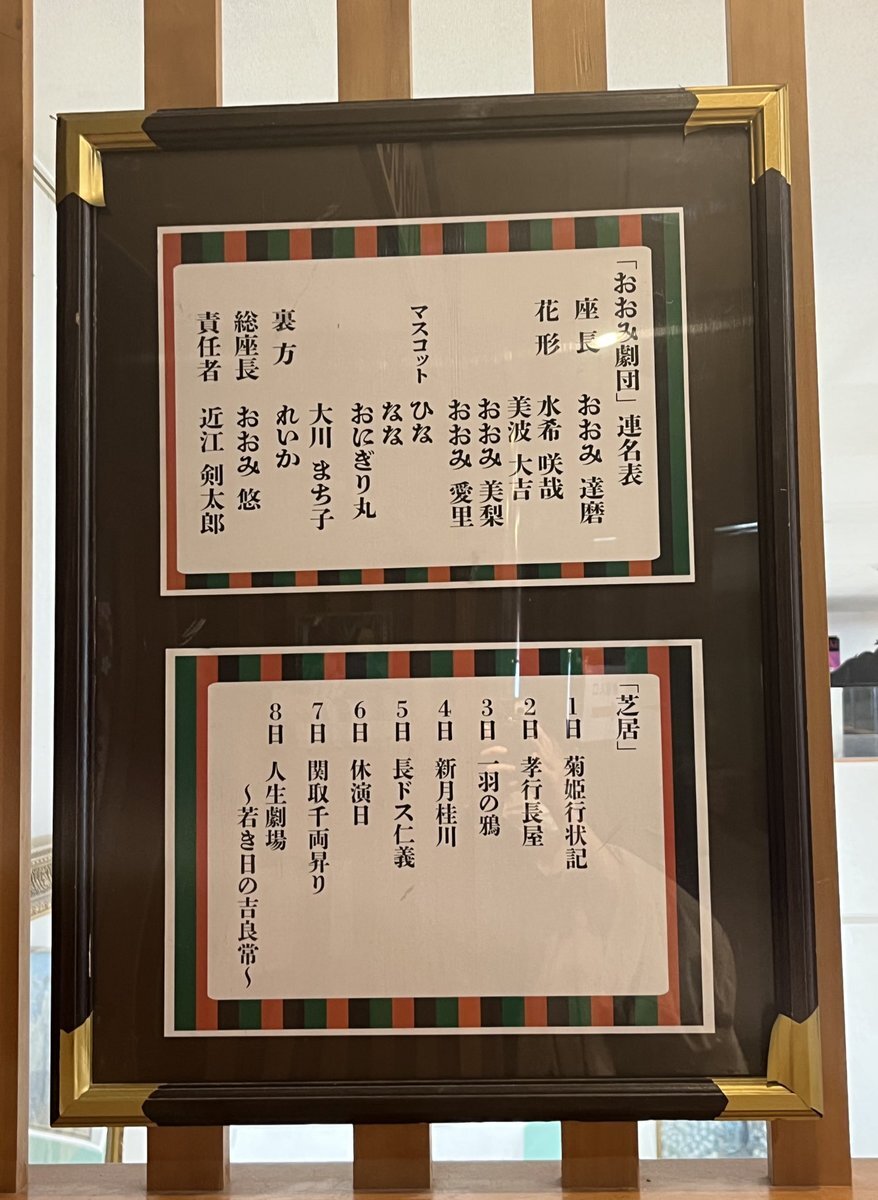 「おおみ劇団」連名表
座長 おおみ 達磨
花形 水希 咲哉
美波 大吉
おおみ 美梨
おおみ 愛里
マスコット ひな
なな
おにぎり丸
大川 まち子
裏方 れいか
総座長 おおみ 悠
責任者 近江 剣太郎
「芝居」
1日 菊姫行状記
2日 孝行長屋
3日 一羽の鴉
4日 新月桂川
5日 長ドス仁義
6日 休演日
7日 関取千両昇り
8日 人生劇場
～若き日の吉良常～